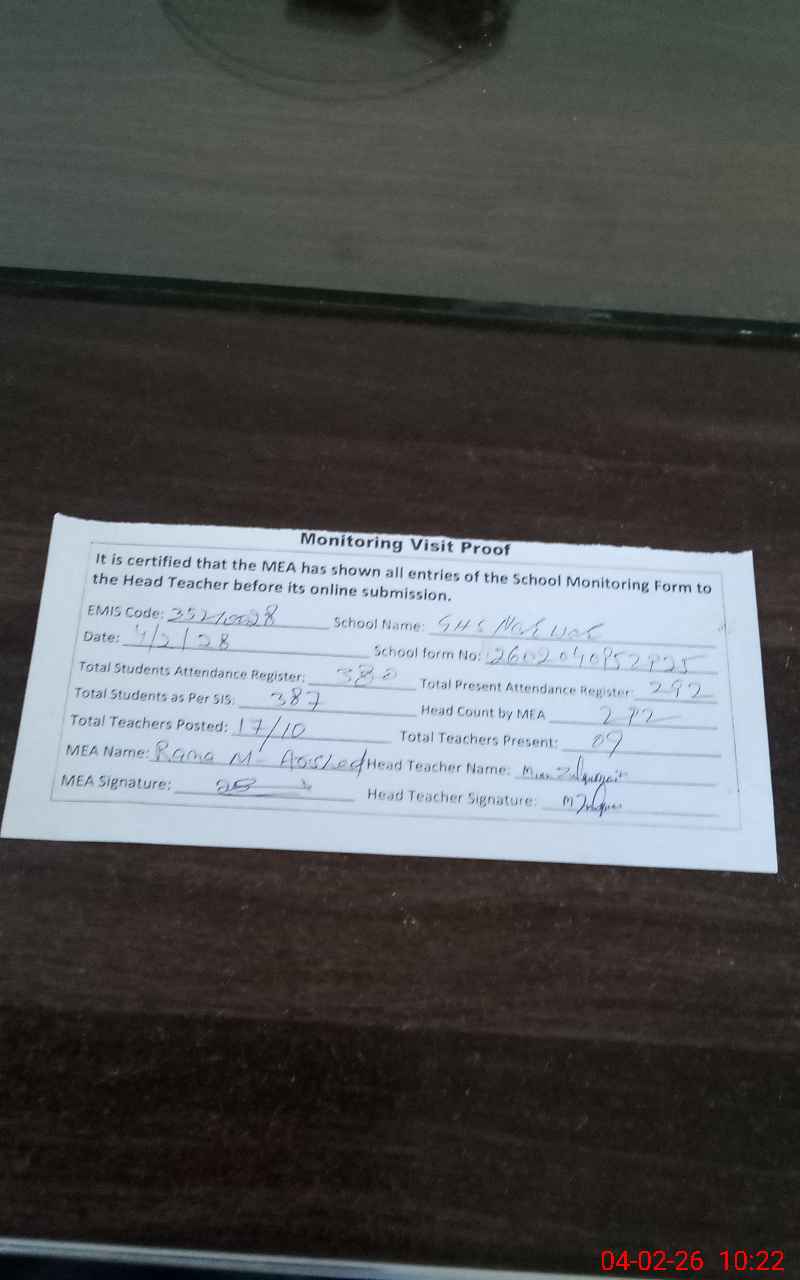 Monitoring Visit Proof
It is certified that the MEA has shown all entries of the School Monitoring Form to
the Head Teacher before its online submission.
EMIS Code: School Name: GHS
Date: 4/2/28 School form No:
Total Students Attendance Register: 380 Total Present Attendance Register: 292
Total Students as Per SIS: 387 Head Count by MEA 292
Total Teachers Posted: 17/10 Total Teachers Present: 09
MEA Name: Rana M- Head Teacher Name: Mian
MEA Signature: Head Teacher Signature:
04-02-26 10:22